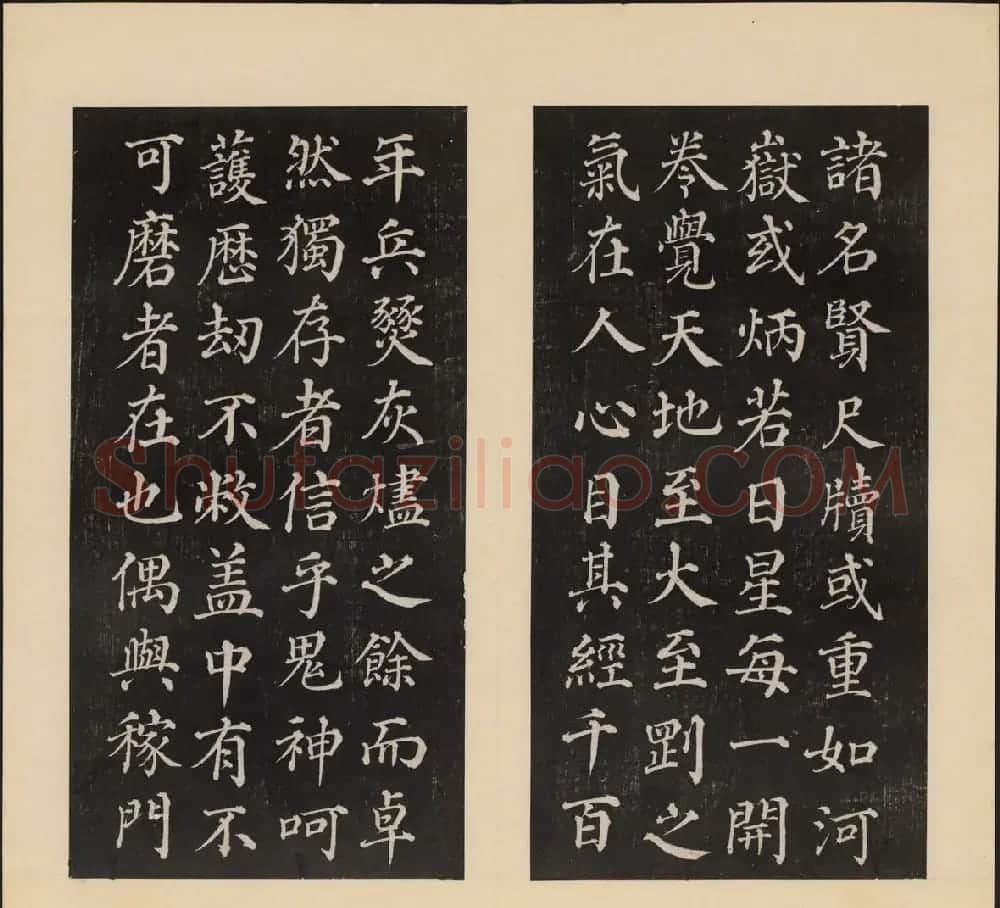 諸名賢尺牘或重如河
嶽或炳若日星每一開
卷覺天地至大至剛之
氣在人心目其經千百
年兵燹灰燼之餘而卓
然獨存者信乎鬼神呵
護歷劫不敝盖中有不
可磨者在也偶與稼門
Shufaziliao.COM